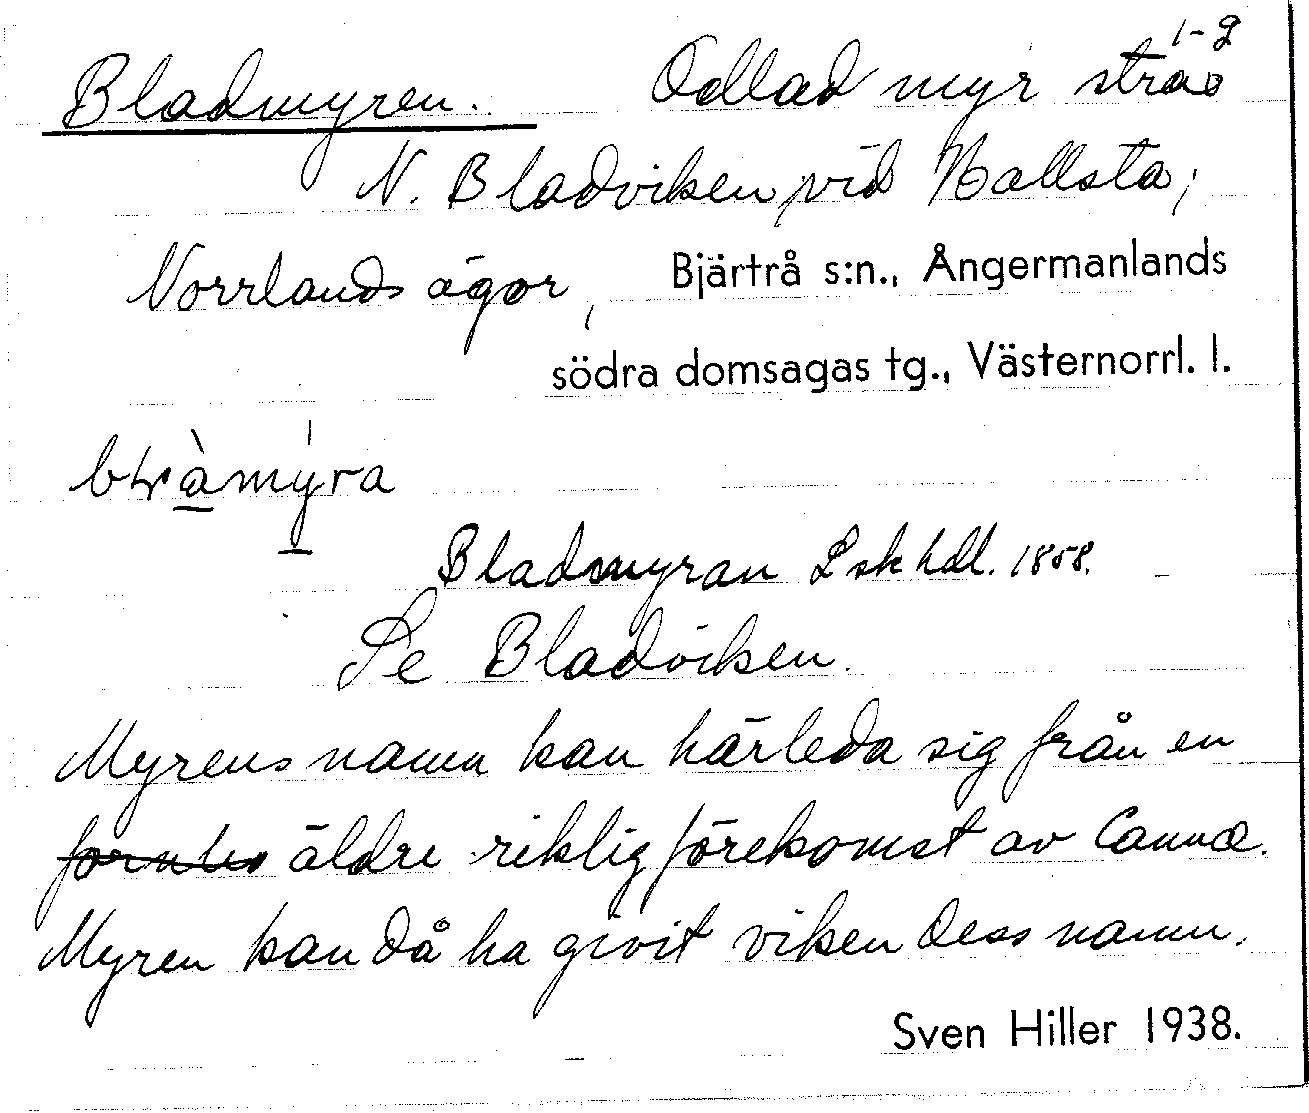 1-2
Bladmyren. Odlad myr strax
N. Bladviken, vid Hallsta,
Norrlands ägor, Bjärtrå s:n., Ångermanlands
södra domsagas tg., Västernorrl. l.
myra
Bladmyran Lskhdl. 1858.
Se Bladviken.
Myrens namn kan härleda sig från en
äldre riklig förekomst av Canna.
Myren kan då ha givit viken dess namn.
Sven Hiller 1938.